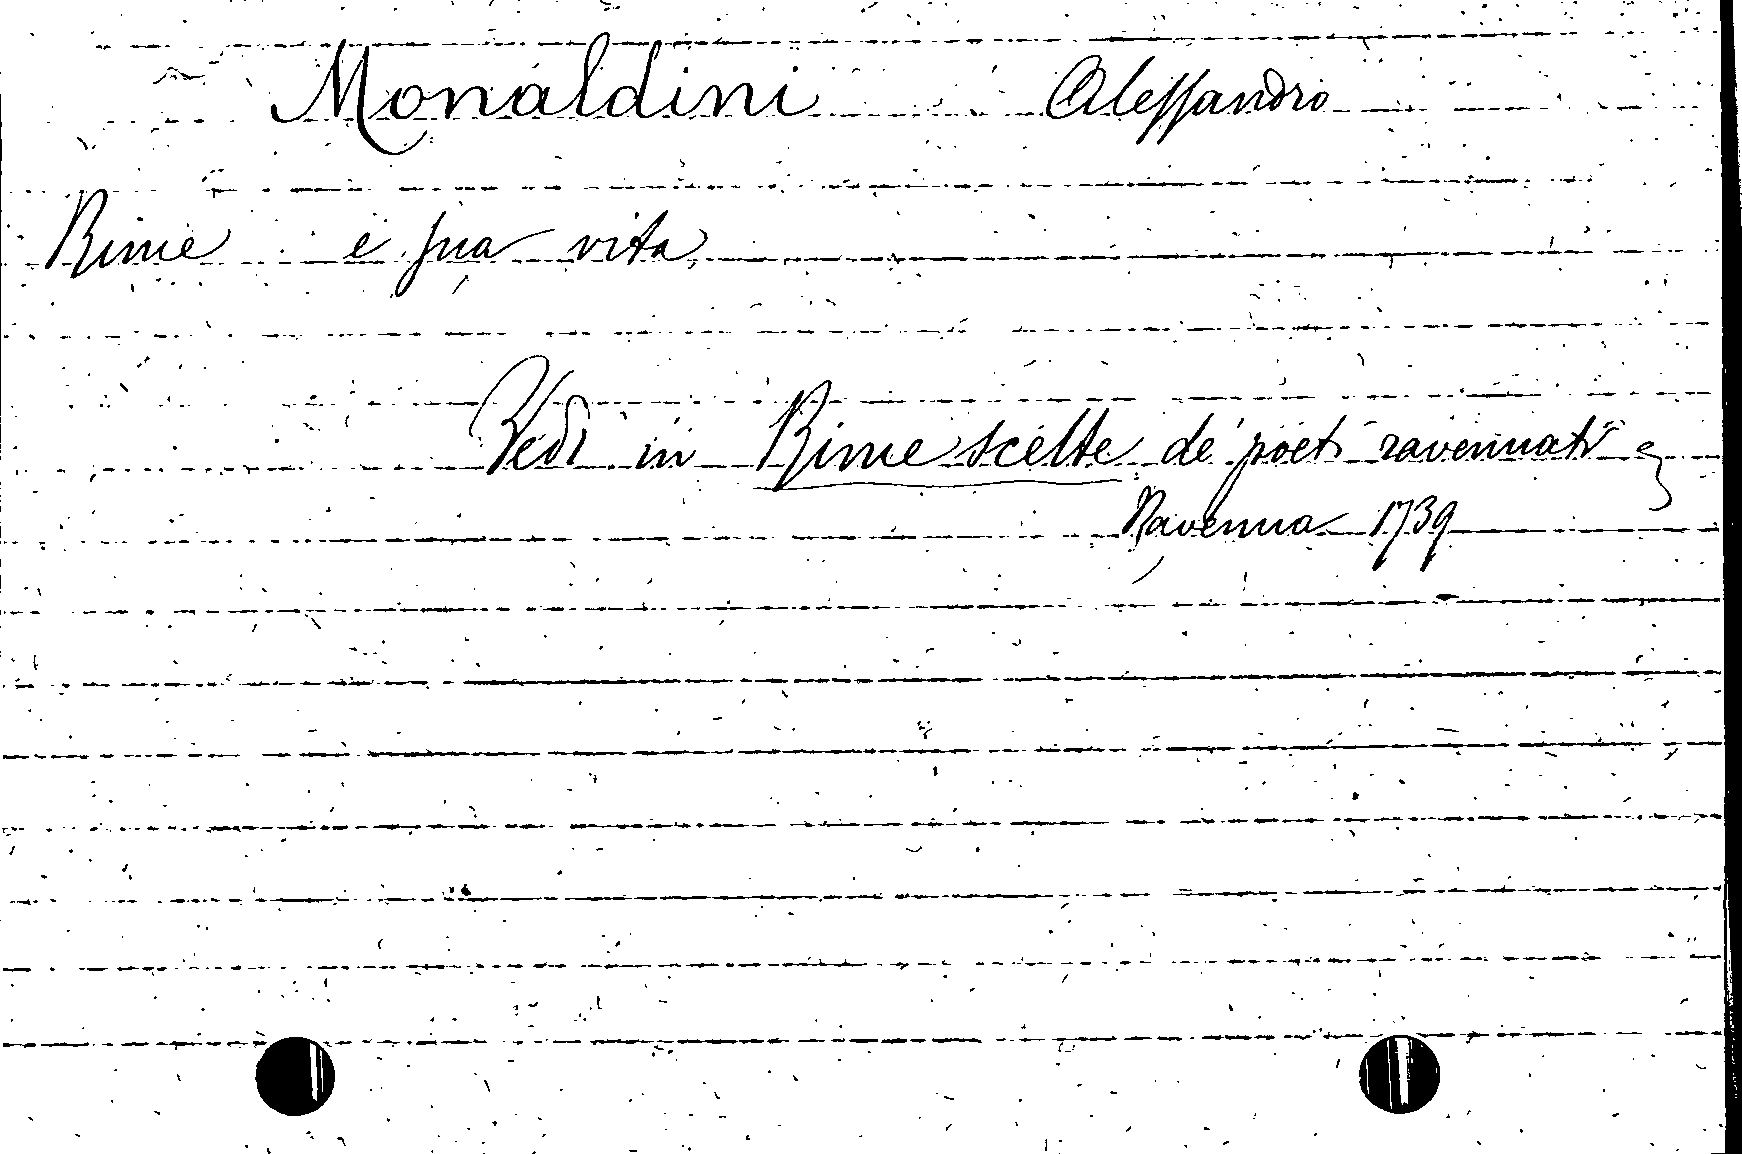 Monaldini Alessandro
Rime e sua vita
Vedi in Rime scelte de' poeti ravennati
Ravenna 1739